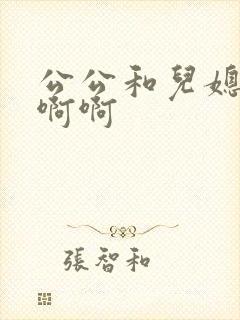 公公和兒媳
啊啊
張智和